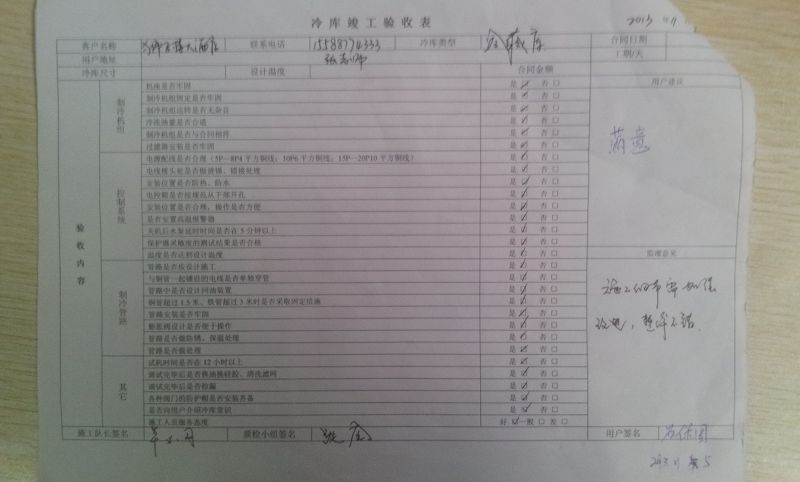 冷库竣工验收表
2013
客户名称 联系电话 15588774333 冷库类型 合同日期
用户地址 工期/天
冷库尺寸 设计温度 合同金额
用户建议
验收内容
制冷机组
机座是否牢固 是 否
制冷机组固定是否牢固 是 否
制冷机组运转是否无杂音 是 否
冷冻油量是否合适 是 否
制冷机组是否与合同相符 是 否
过滤器安装是否牢固 是 否
满意
控制系统
电源配线是否合理(5P—8P4平方铜线;10P6平方铜线;15P—20P10平方铜线) 是 否
电线接头处是否做烫锡、镀接处理 是 否
安装位置是否防热、防水 是 否
电控箱是否按规范从下部开孔 是 否
安装位置是否合理,操作是否方便 是 否
是否安置高温报警器 是 否
关机后水泵延时时间是否在5分钟以上 是 否
保护器灵敏度的测试结果是否合格 是 否
温度是否达到设计温度 是 否
监理意见
制冷管路
管路是否按设计施工 是 否
与铜管一起铺设的电线是否单独穿管 是 否
管路中是否设计回油装置 是 否
铜管超过1.5米、铁管超过3米时是否采取固定措施 是 否
管路安装是否牢固 是 否
膨胀阀设计是否便于操作 是 否
管路是否做防锈、保温处理 是 否
管路是否做处理 是 否
其它
试机时间是否在12小时以上 是 否
调试完毕后是否换油换硅胶、清洗滤网 是 否
调试完毕后是否检漏 是 否
各种阀门的防护帽是否安装齐备 是 否
是否向用户介绍冷库常识 是 否
施工人员服务态度 好 一般 差
施工队长签名 质检小组签名 用户签名